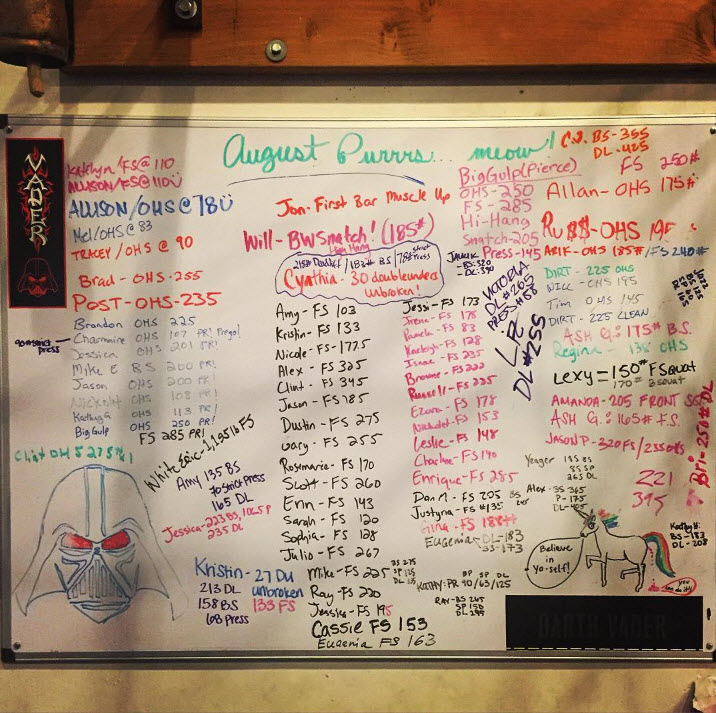 August Purrrs... meow!
VADER
Katelyn/FS@ 110
ALLISON/FS@110
ALLISON/OHS@78
Mel/OHS@ 83
TRACEY/OHS@ 90
Brad-OHS-255
POST-OHS-235
Brandon OHS 225
90# strict press
Charmaine OHS 107 PR! Prego!
Jessica OHS 201 PR!
Mike E BS 200 PR!
Jason OHS 200 PR!
OHS 108 PR!
Kathy G OHS 113 PR!
Big Gulp OHS 250 PR!
FS 285 PR!
Clint OHS 275#!
Jon-First Bar Muscle Up
Will-BW Snatch! (185#)
High Hang
215# Deadlift/183# BS/78# strict Press
Cynthia-30 doubleunders
unbroken!
Amy-FS 103
Kristin-FS 133
Nicole-FS-177.5
Alex-FS 325
Clint-FS 345
Jason-FS 185
Dustin-FS 275
Gary-FS 255
Rosemarie-FS 170
Scott-FS 260
Erin-FS 143
Sarah-FS 120
Sophia-FS 128
Julio-FS 267
Mike-FS 225
BS 275
SP 135
DL 335
Ray-FS 220
Jessica-FS 195
Cassie FS 153
Eugenia FS 163
White Eric-1,195 lb FS
Amy 135 BS
70 Strict Press
165 DL
Jessica-223 BS, 106 SP
235 DL
Kristin-27 DU
unbroken
213 DL
158 BS
133 FS
108 Press
Jessi-FS 173
Irene-FS 175
Pamela-FS 83
Kaeleigh-FS 128
Isaac-FS 235
Browne-FS 222
Russell-FS 225
Ezara-FS 178
FS 153
Leslie-FS 148
Charlene-FS 140
Enrique-FS 285
Dan M-FS 205
BS 245
Justyna-FS #135
Gina-FS 188#
Eugenia-DL-183
BS-173
KATHY: PR
BP SP DL
90/63/125
RAY-BS 265
SP 150
DL 295
BigGulp(Pierce)
OHS-250
FS-285
Hi-Hang
Snatch-205
Press-145
-BS:320
-DL:390
VICTORIA
DL #205
PRESS #88
LIZ
DL #255
C.J. BS-355
DL-425
FS 250#
Allan-OHS 175#
Ru$$-OHS 195
ARIK-OHS 185#/FS 240#
DIRT-225 OHS
WILL-OHS 195
Tim OHS 145
DIRT-225 CLEAN
ASH G.: 175# B.S.
Regina-138 OHS
LEXY=150# FSquat
170# BSquat
AMANDA-205 FRONT SQT
ASH G.: 165# F.S.
JASON P-320 FS/255 OHS
Bri-250# DL
Yeager 185 BS
85 SP
265 DL
Alex-BS 365
P-175
DL-405
221
395
Believe
in
yo-self!
Kathy H:
BS-183
DL-208
you
can do it!
DARTH VADER